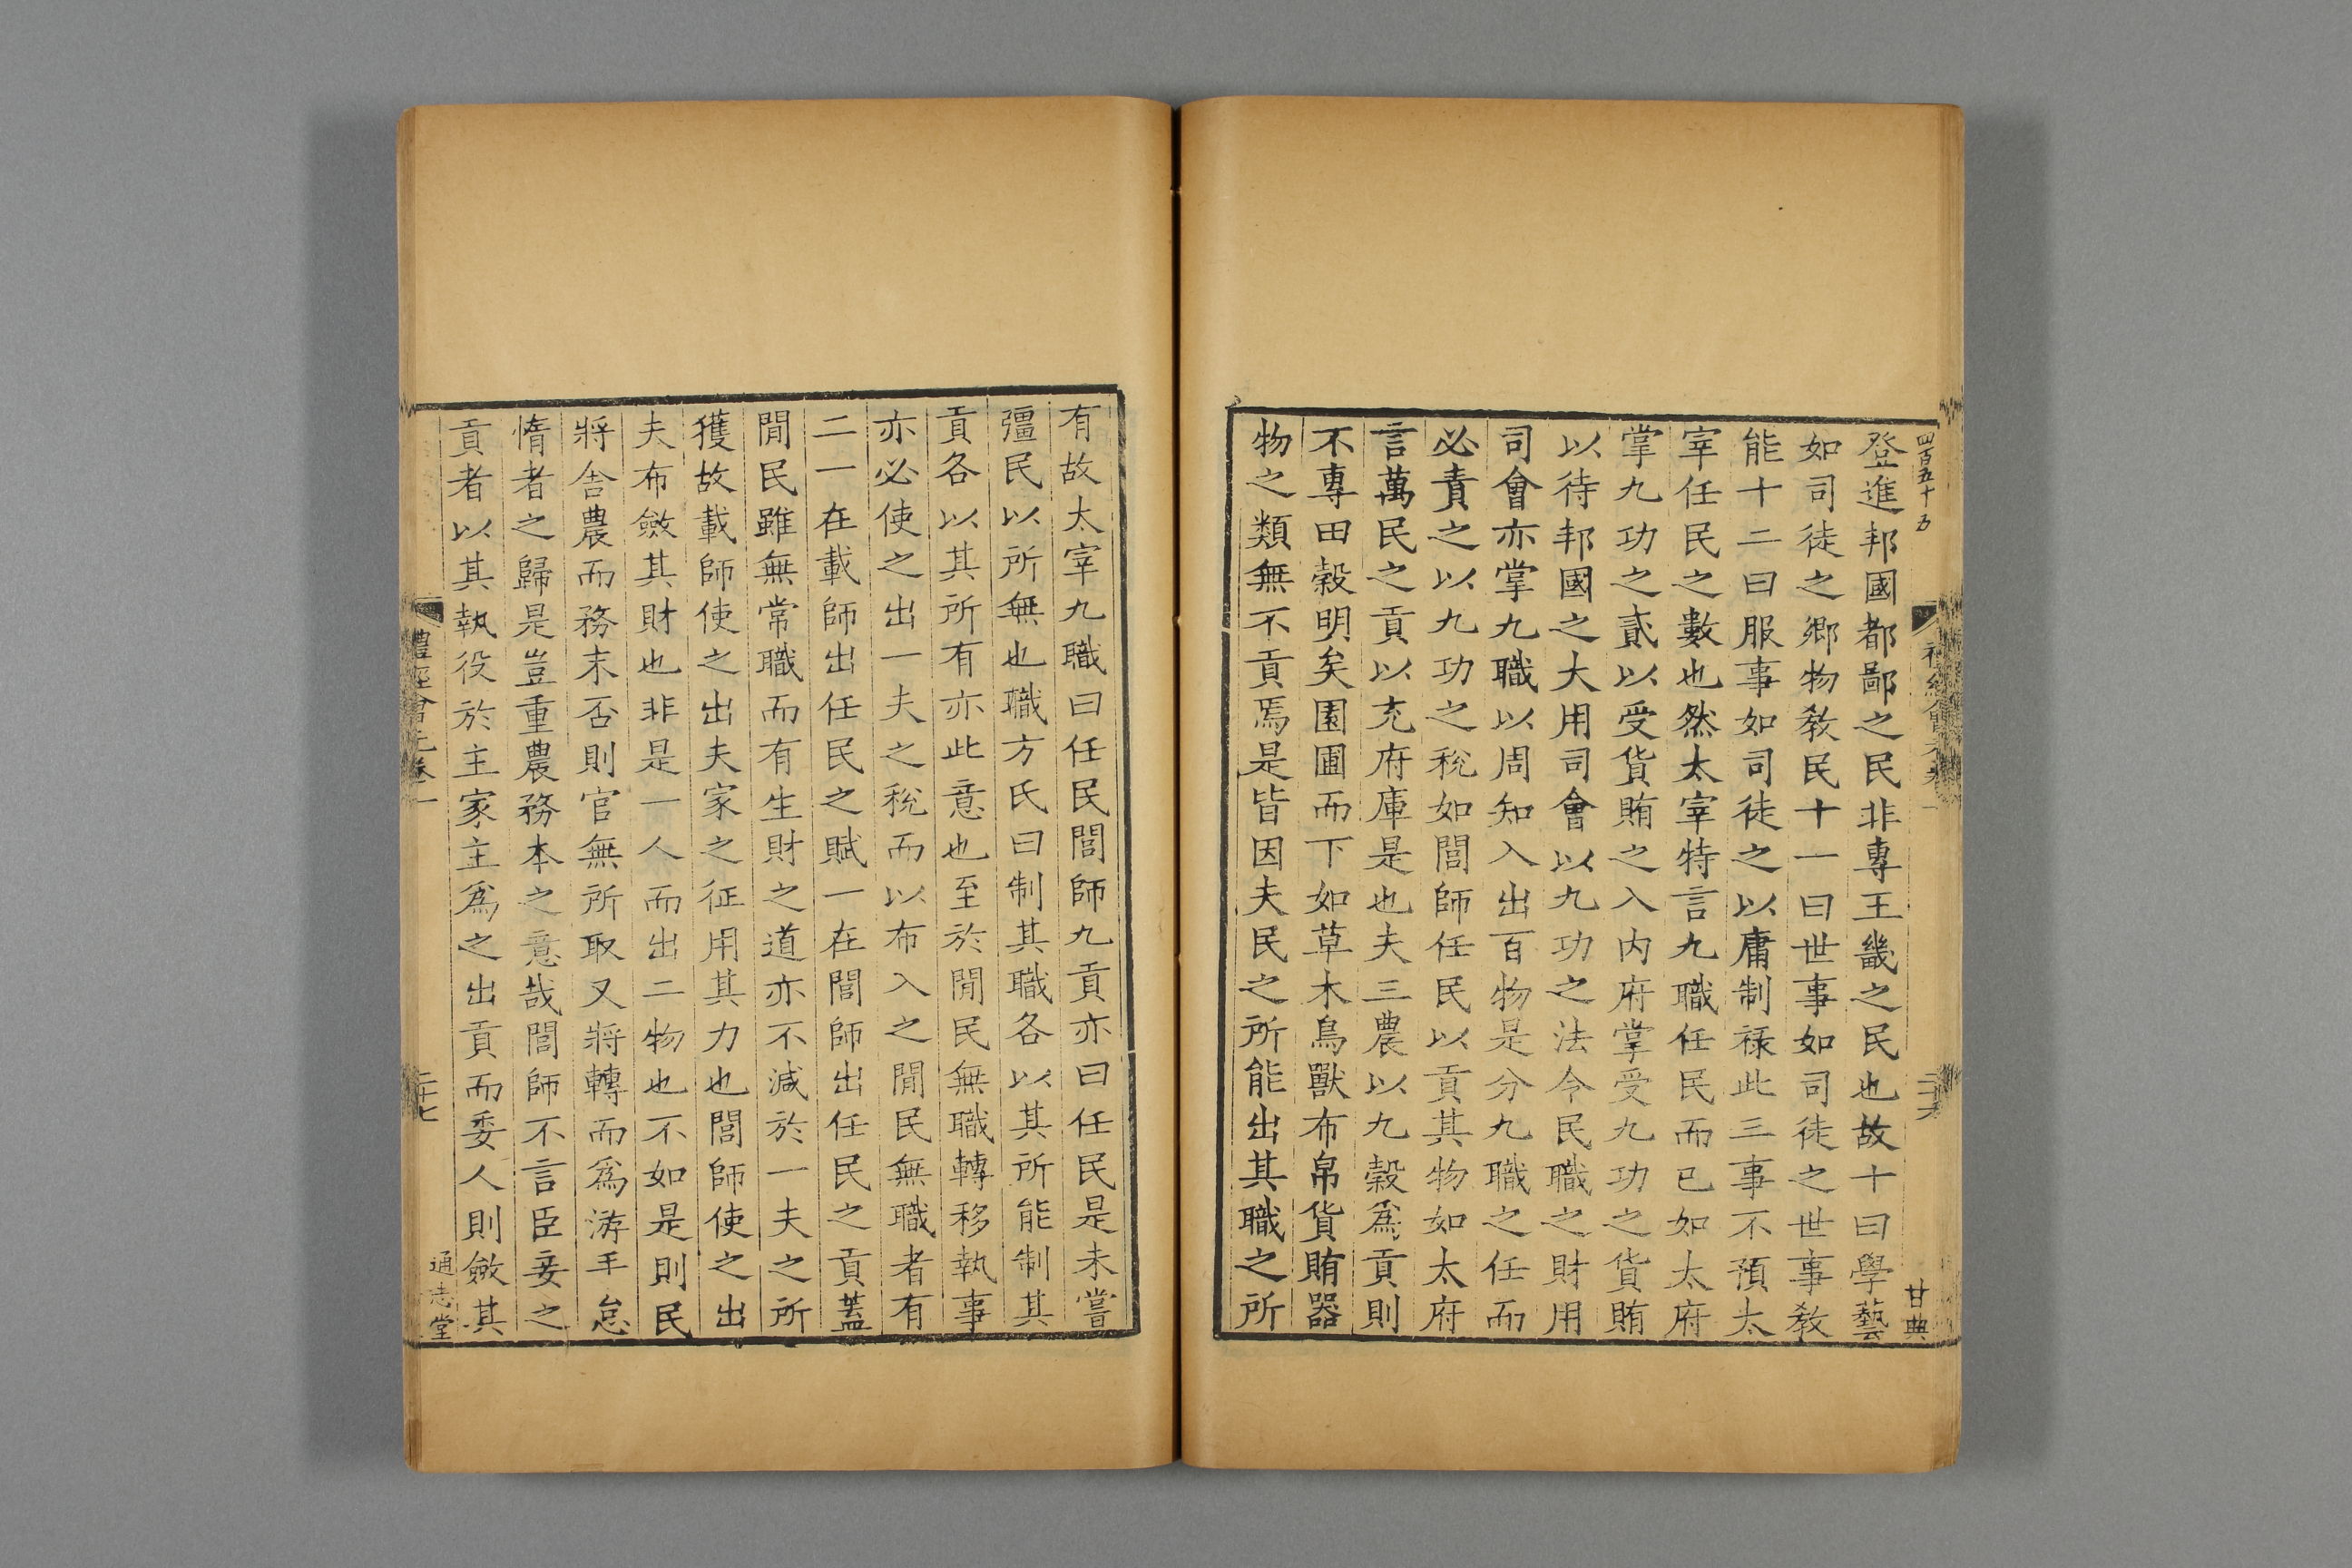 四百五十五
登進邦國都鄙之民非專王畿之民也故十曰學藝
如司徒之鄉物教民十一曰世事如司徒之世事教
能十二曰服事如司徒之以庸制祿此三事不預太
宰任民之數也然太宰特言九職任民而已如太府
掌九功之貳以受貨賄之入內府掌受九功之貨賄
以待邦國之大用司會以九功之法令民職之財用
司會亦掌九職以周知入出百物是分九職之任而
必責之以九功之稅如閭師任民以貢其物如太府
言萬民之貢以充府庫是也夫三農以九穀爲貢則
不專田穀明矣園圃而下如草木鳥獸布帛貨賄器
物之類無不貢焉是皆因夫民之所能出其職之所
甘典
有故太宰九職曰任民閭師九貢亦曰任民是未嘗
彊民以所無也職方氏曰制其職各以其所能制其
貢各以其所有亦此意也至於閒民無職轉移執事
亦必使之出一夫之稅而以布入之閒民無職者有
二一在載師出任民之賦一在閭師出任民之貢蓋
閒民雖無常職而有生財之道亦不減於一夫之所
獲故載師使之出夫家之征用其力也閭師使之出
夫布斂其財也非是一人而出二物也不如是則民
將舍農而務末否則官無所取又將轉而爲游手怠
惰者之歸是豈重農務本之意哉閭師不言臣妾之
貢者以其執役於主家主爲之出貢而委人則斂其
禮經會元卷一
二十七
通志堂